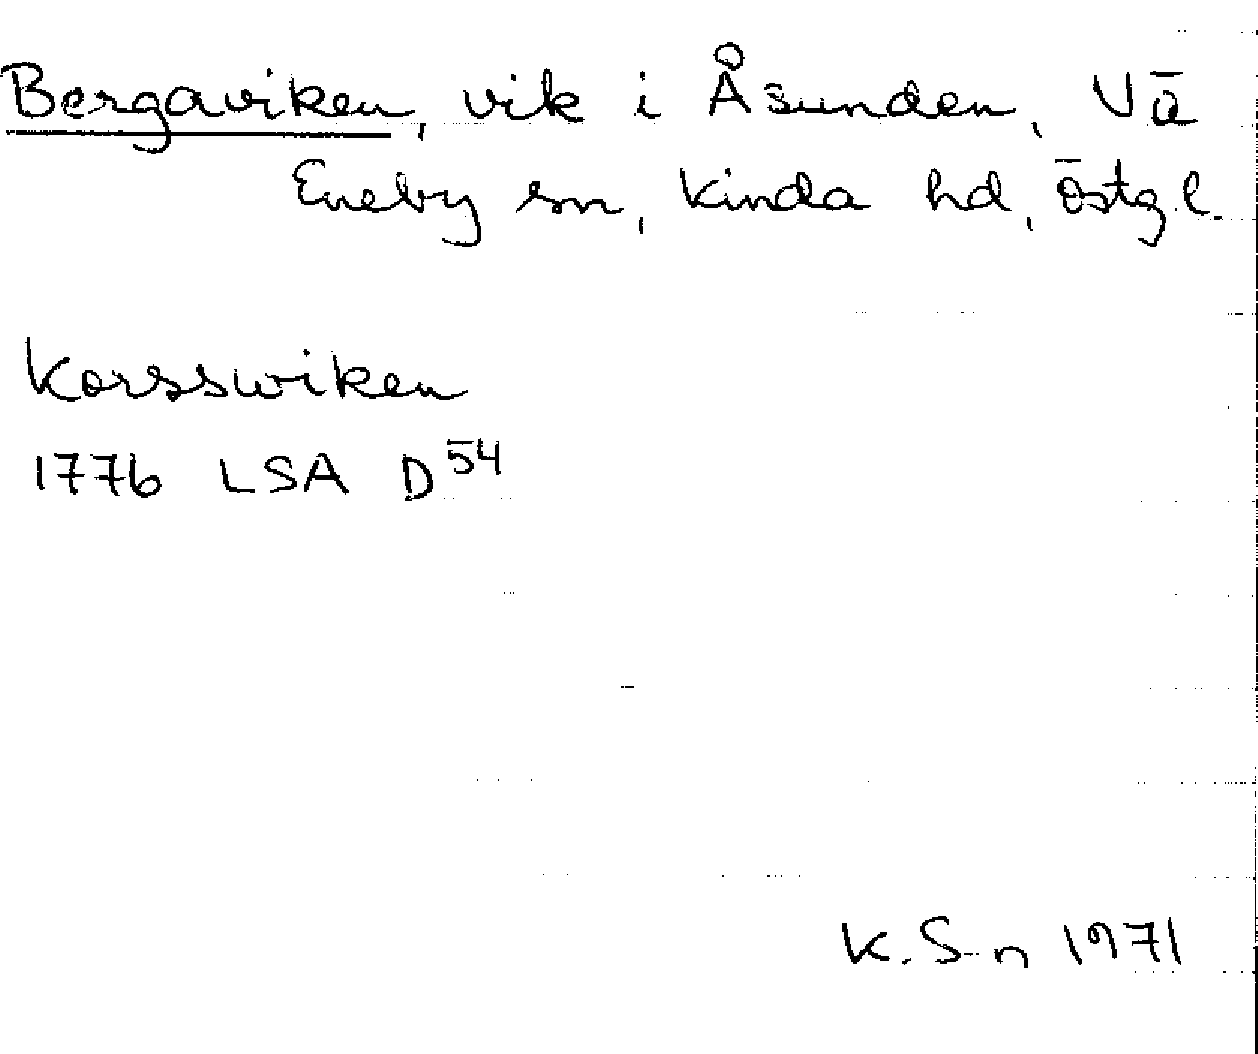 Bergaviken, vik i Åsunden, Vä
Eneby sn, Kinda hd, Östg.l.
Korsswiken
1776 LSA D54
K.S-n 1971